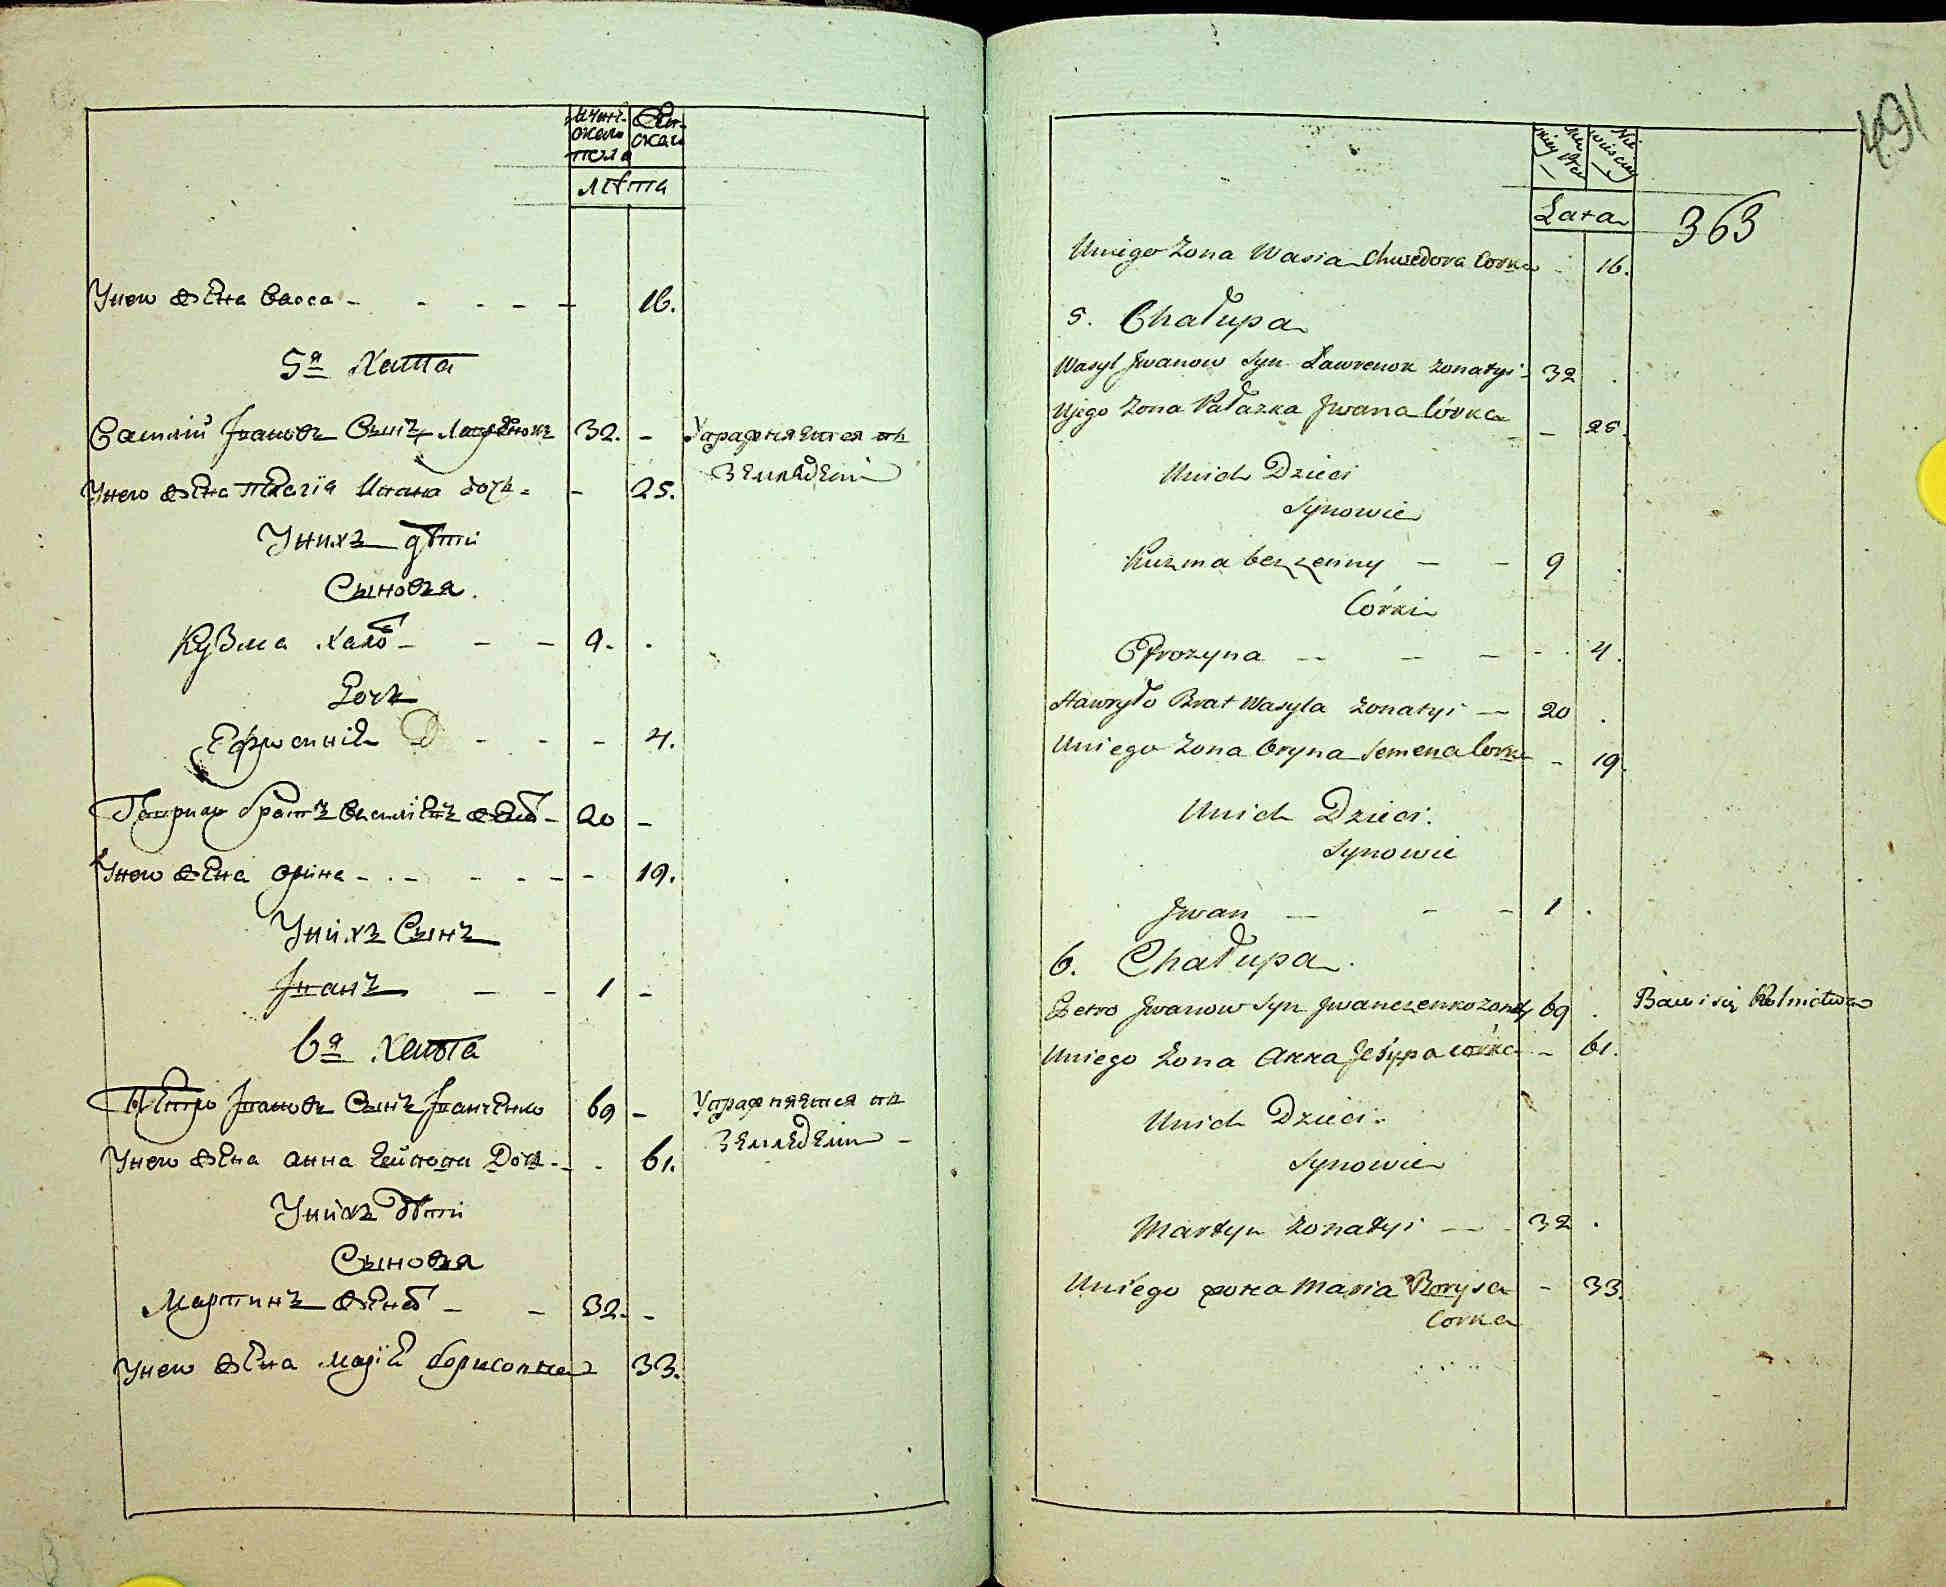 мужс-
кого
пола
Жен-
ского
Лѣта
У него жена Васса - - - - - 16.
5я Хата
Василий Ивановъ Сынъ Лавренокъ 32. - Упражняется въ
земледелии
У него жена Пелагія Ивана дочь - - 25.
У нихъ дѣти
Сыновья.
Кузма холо - - - 9.
Дочь
Ефросинія - - - 4.
Гаврило братъ Василіевъ жена - 20 -
У него жена Орина - - - - - 19.
У нихъ Сынъ
Іванъ - - 1 -
6я Хата
Петро Ивановъ Сынъ Іванченко 69 - Упражняется въ
земледелии -
У него жена Анна Дочь - - 61.
У нихъ Дѣти
Сыновья
Мартинъ жена - - 32. -
У него жена Марія Борисовна 33.
491
Lata
363
Uniego Zona Wasia Chwedora Corka - 16.
5. Chałupa
Wasyl Jwanow Syn Ławrenok zonatyi - 32 .
Ujego Zona Pałazka Jwana Córka - - 25.
Unich Dzieci
Synowie
Kuzma bezzenny - - 9
Córki
Efrozyna - - - - . 4.
Hawryło Brat Wasyla zonatyi - 20 .
Uniego Zona Oryna Semena Corka - 19.
Unich Dzieci.
Synowie
Jwan - - - 1 .
6. Chałupa.
Petro Jwanow Syn Jwanczenko zonaty 69 . Bawi się Rolnictwem
Uniego Zona Anna córka - 61.
Unich Dzieci.
Synowie
Martyn zonatyi - - 32 .
Uniego zona Maria Borysa - 33.
Corka